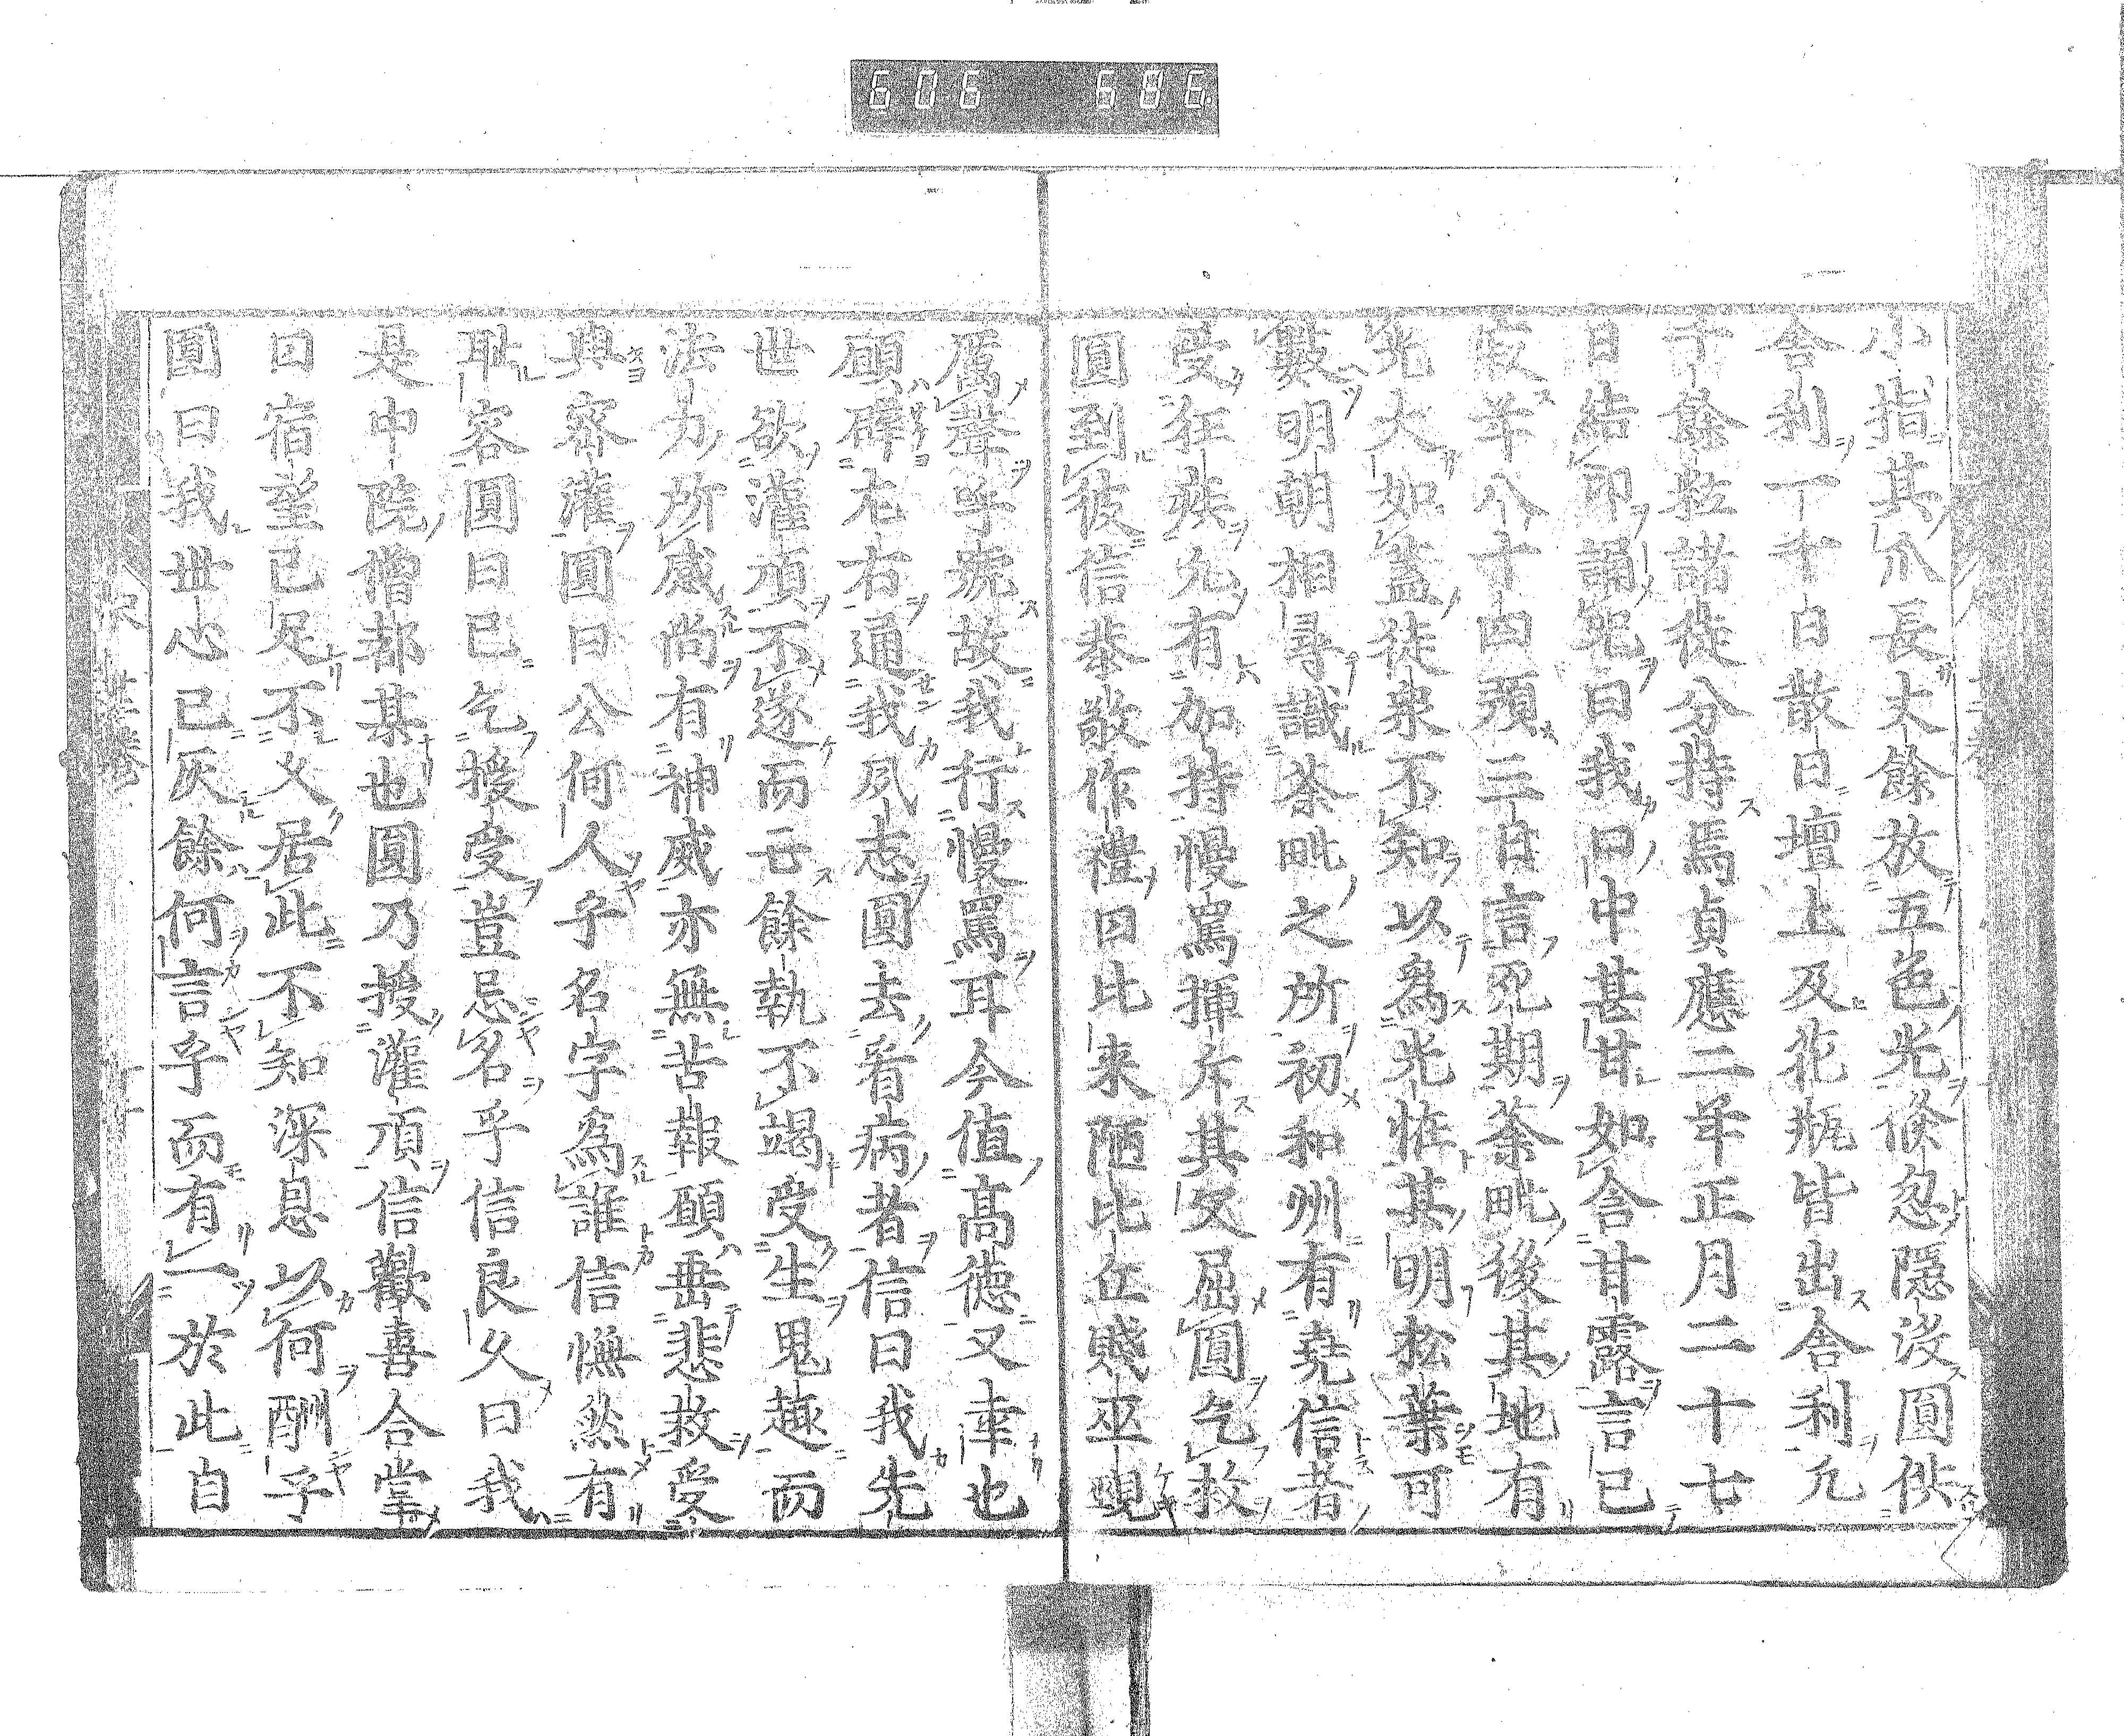 606 606
小指其爪長丈餘放五色光倐忽隱沒圓供
舎利一千日散日壇上及花瓶皆出舎利九
千餘粒諸徒分持焉貞應二年正月二十七
日結印誦咒曰我口中甚甘如含甘露言已
寂年八十四預三日言死期荼毗後其地有
光大如蓋徒衆不知以爲光恠其明松葉可
數明朝相尋識荼毗之所初和州有堯信者
受狂疾凢有加持慢罵揮斥其父屈圓乞救
圓到彼信恭敬作禮曰比來陋比丘賤巫覡
厲聲呼號故我行慢罵耳今值高德又幸也
願辟左右通我夙志圓去看病者信曰我先
世欲灌頂不遂而亡餘執不竭受生鬼趣而
法力所感尚有神威亦無苦報願垂悲救受
與密灌圓曰公何人乎名字爲誰信憮然有
耻容圓曰已乞授受豈忌名乎信良久曰我
是中院僧都某也圓乃授灌頂信歡喜合掌
曰宿望已足不久居此不知深恩以何酬乎
圓曰我世心已灰餘何言乎而有一於此自